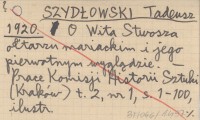 SZYDŁOWSKI Tadeusz
1920. O Wita Stwosza
ołtarzu mariackim i jego
pierwotnym wyglądzie.
Prace Komisji Historii Sztuki
(Kraków) t. 2, nr 1, s. 1-100,
ilustr.